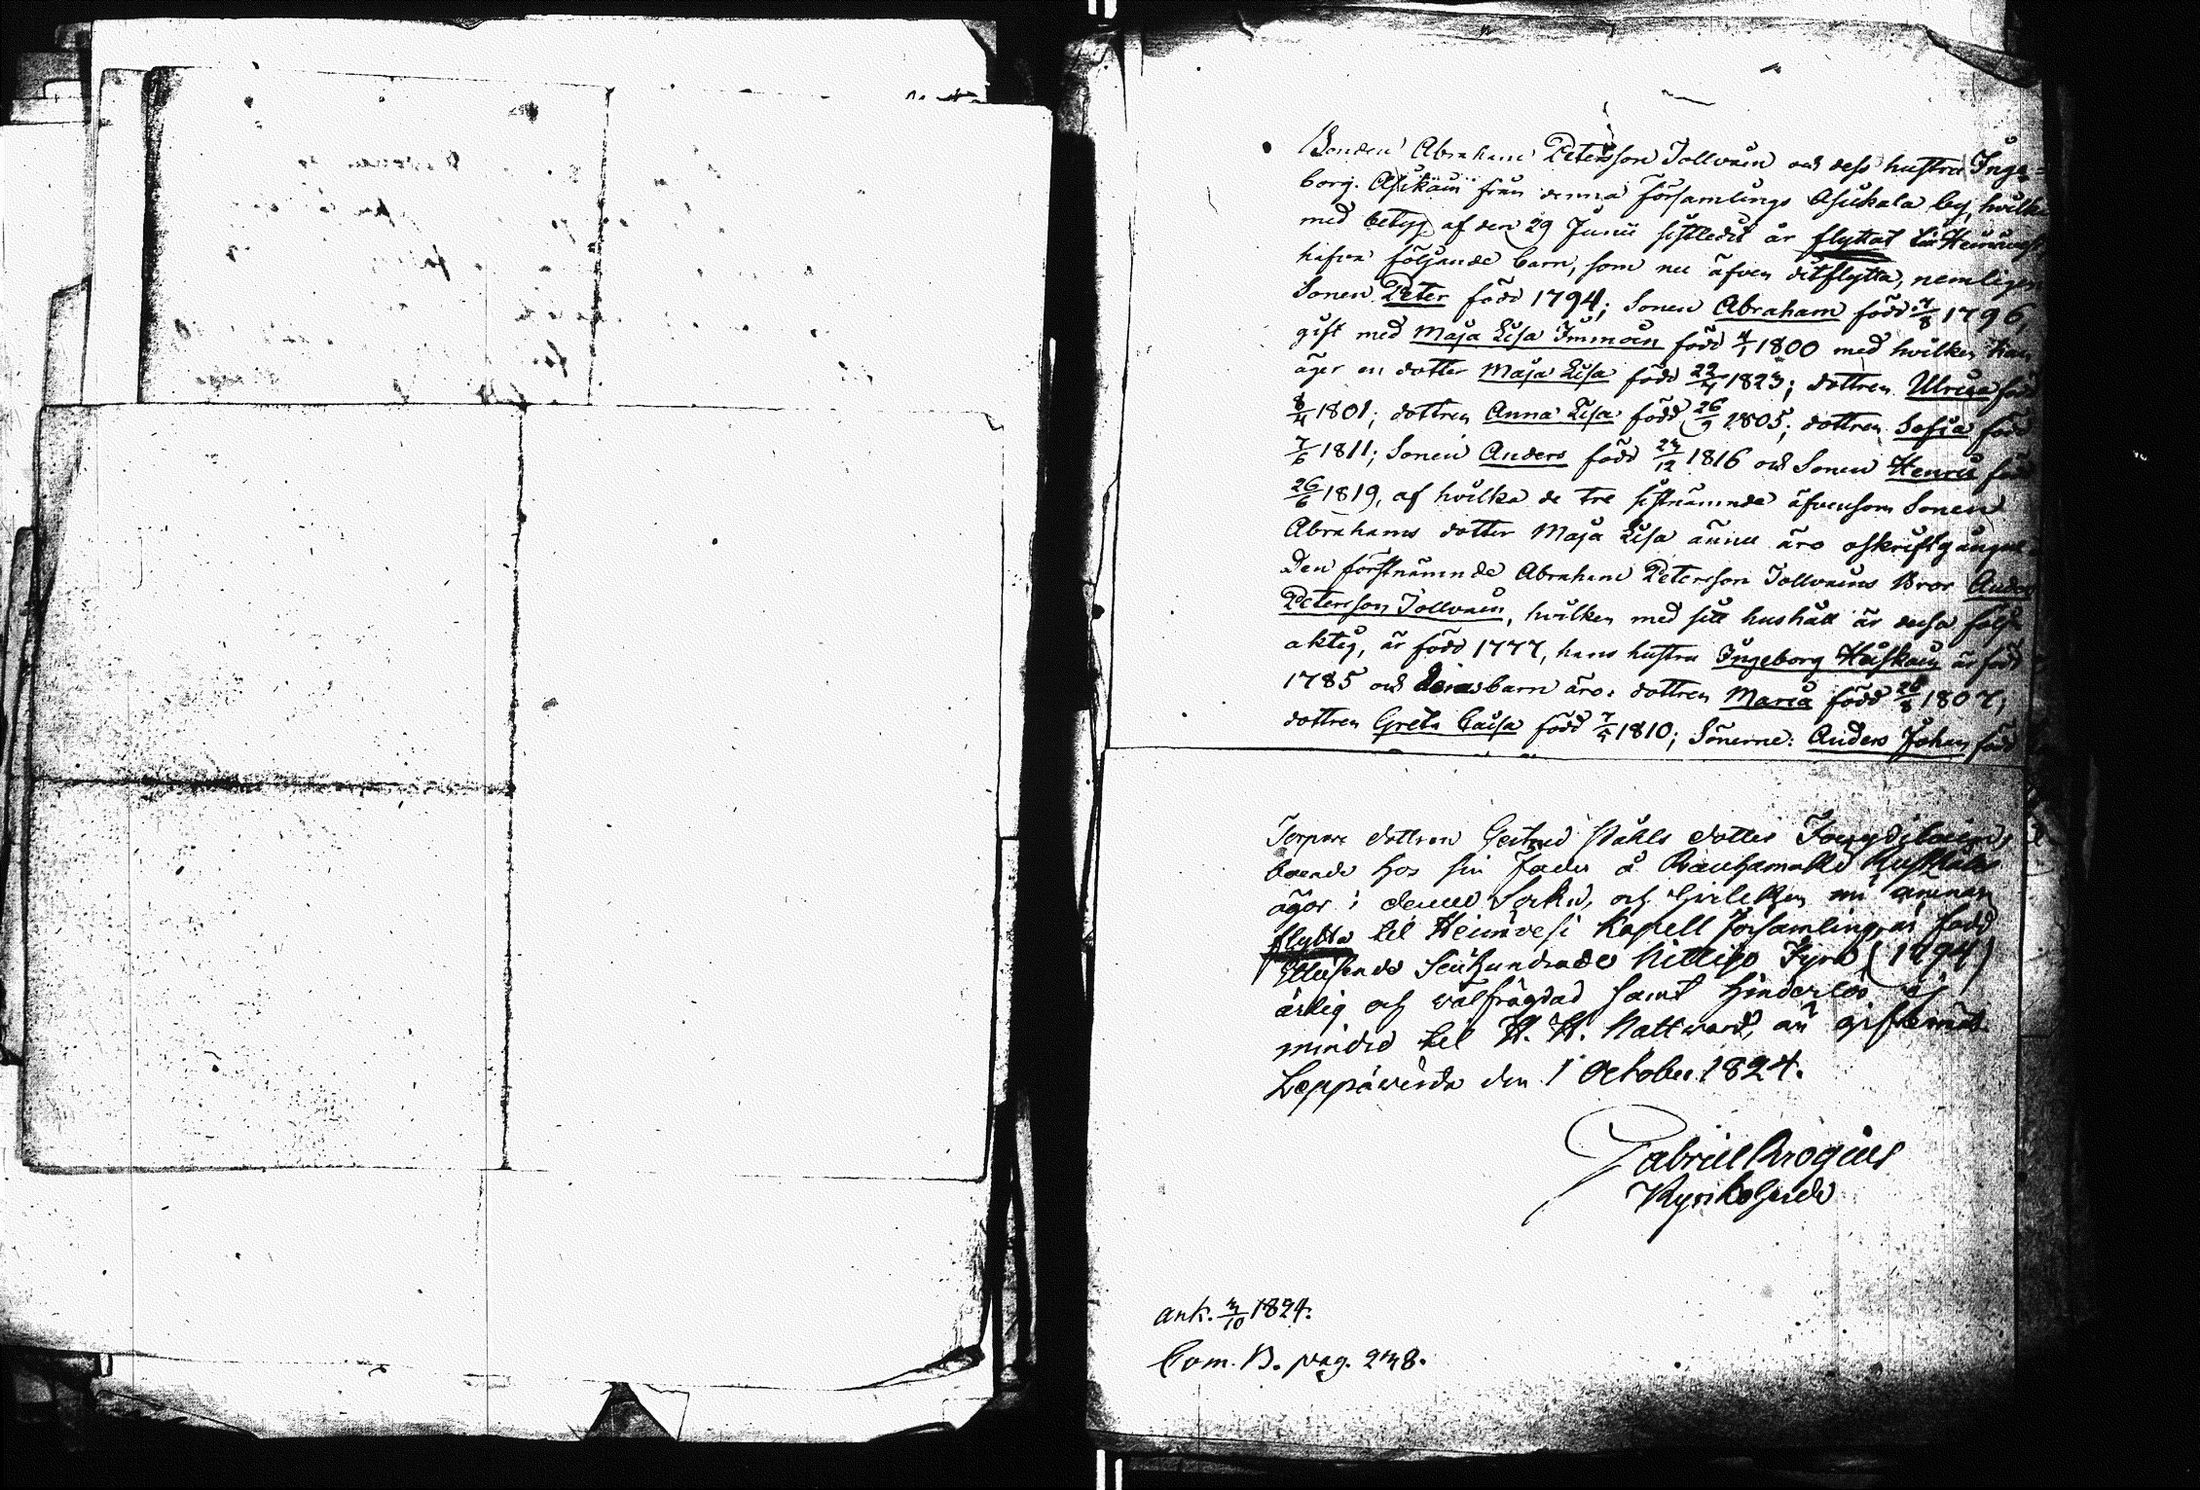 Bonden Abraham Petersson Tollvain och dess hustru Inge=
borg Asikain från denna församlings Asukala by, hvilka
med betyg af den 29 Junii sistledit år flyttat till Heinäves
hafva följande barn, som nu äfven ditflytta, nemligen
Sonen Peter född 1794; Sonen Abraham född 7/8 1796,
gift med Maja Lisa Immoin född 4/1 1800 med hvilken han
äger en dotter Maja Lisa född 1823; dottren Ulrica föd
8/4 1801; dottren Anna Lisa född 26/9 1805; dottren Sofia född
7/6 1811; Sonen Anders född 1816 och Sonen Henric född
26/6 1819, af hvilka de tre sistnämnde äfvensom Sonen
Abrahams dotter Maja Lisa ännu äro oskriftgångne
Den förstnämnde Abraham Petersson Tollvains Bror Anders
Petersson Tollvain, hvilken med sitt hushåll är dessa följ
aktig, är född 1777, hans hustru Ingeborg Huskain är född
1785 och deras barn äro: dottren Maria född 1807;
dottren Greta Caisa född 1810; Sönerne: Anders Johan född
Torpare dottren Gertrud Påhls dotter
boende hos sin fader å
ägor i denne Sokn, och hvilken nu ämnar
flytta til Heinävesi Kapell församling, är född
Ettusende Siuhundrade Nittijo Fyra (1794)
ärlig och välfrägdad samt hinderlös ej
mindre til H. H. Nattvard, än giftermål.
Leppävirda den 1 October 1824.
Gabriel Krogius
Kyrkoherde
ank. 3/10 1824.
Com. B. pag. 238.